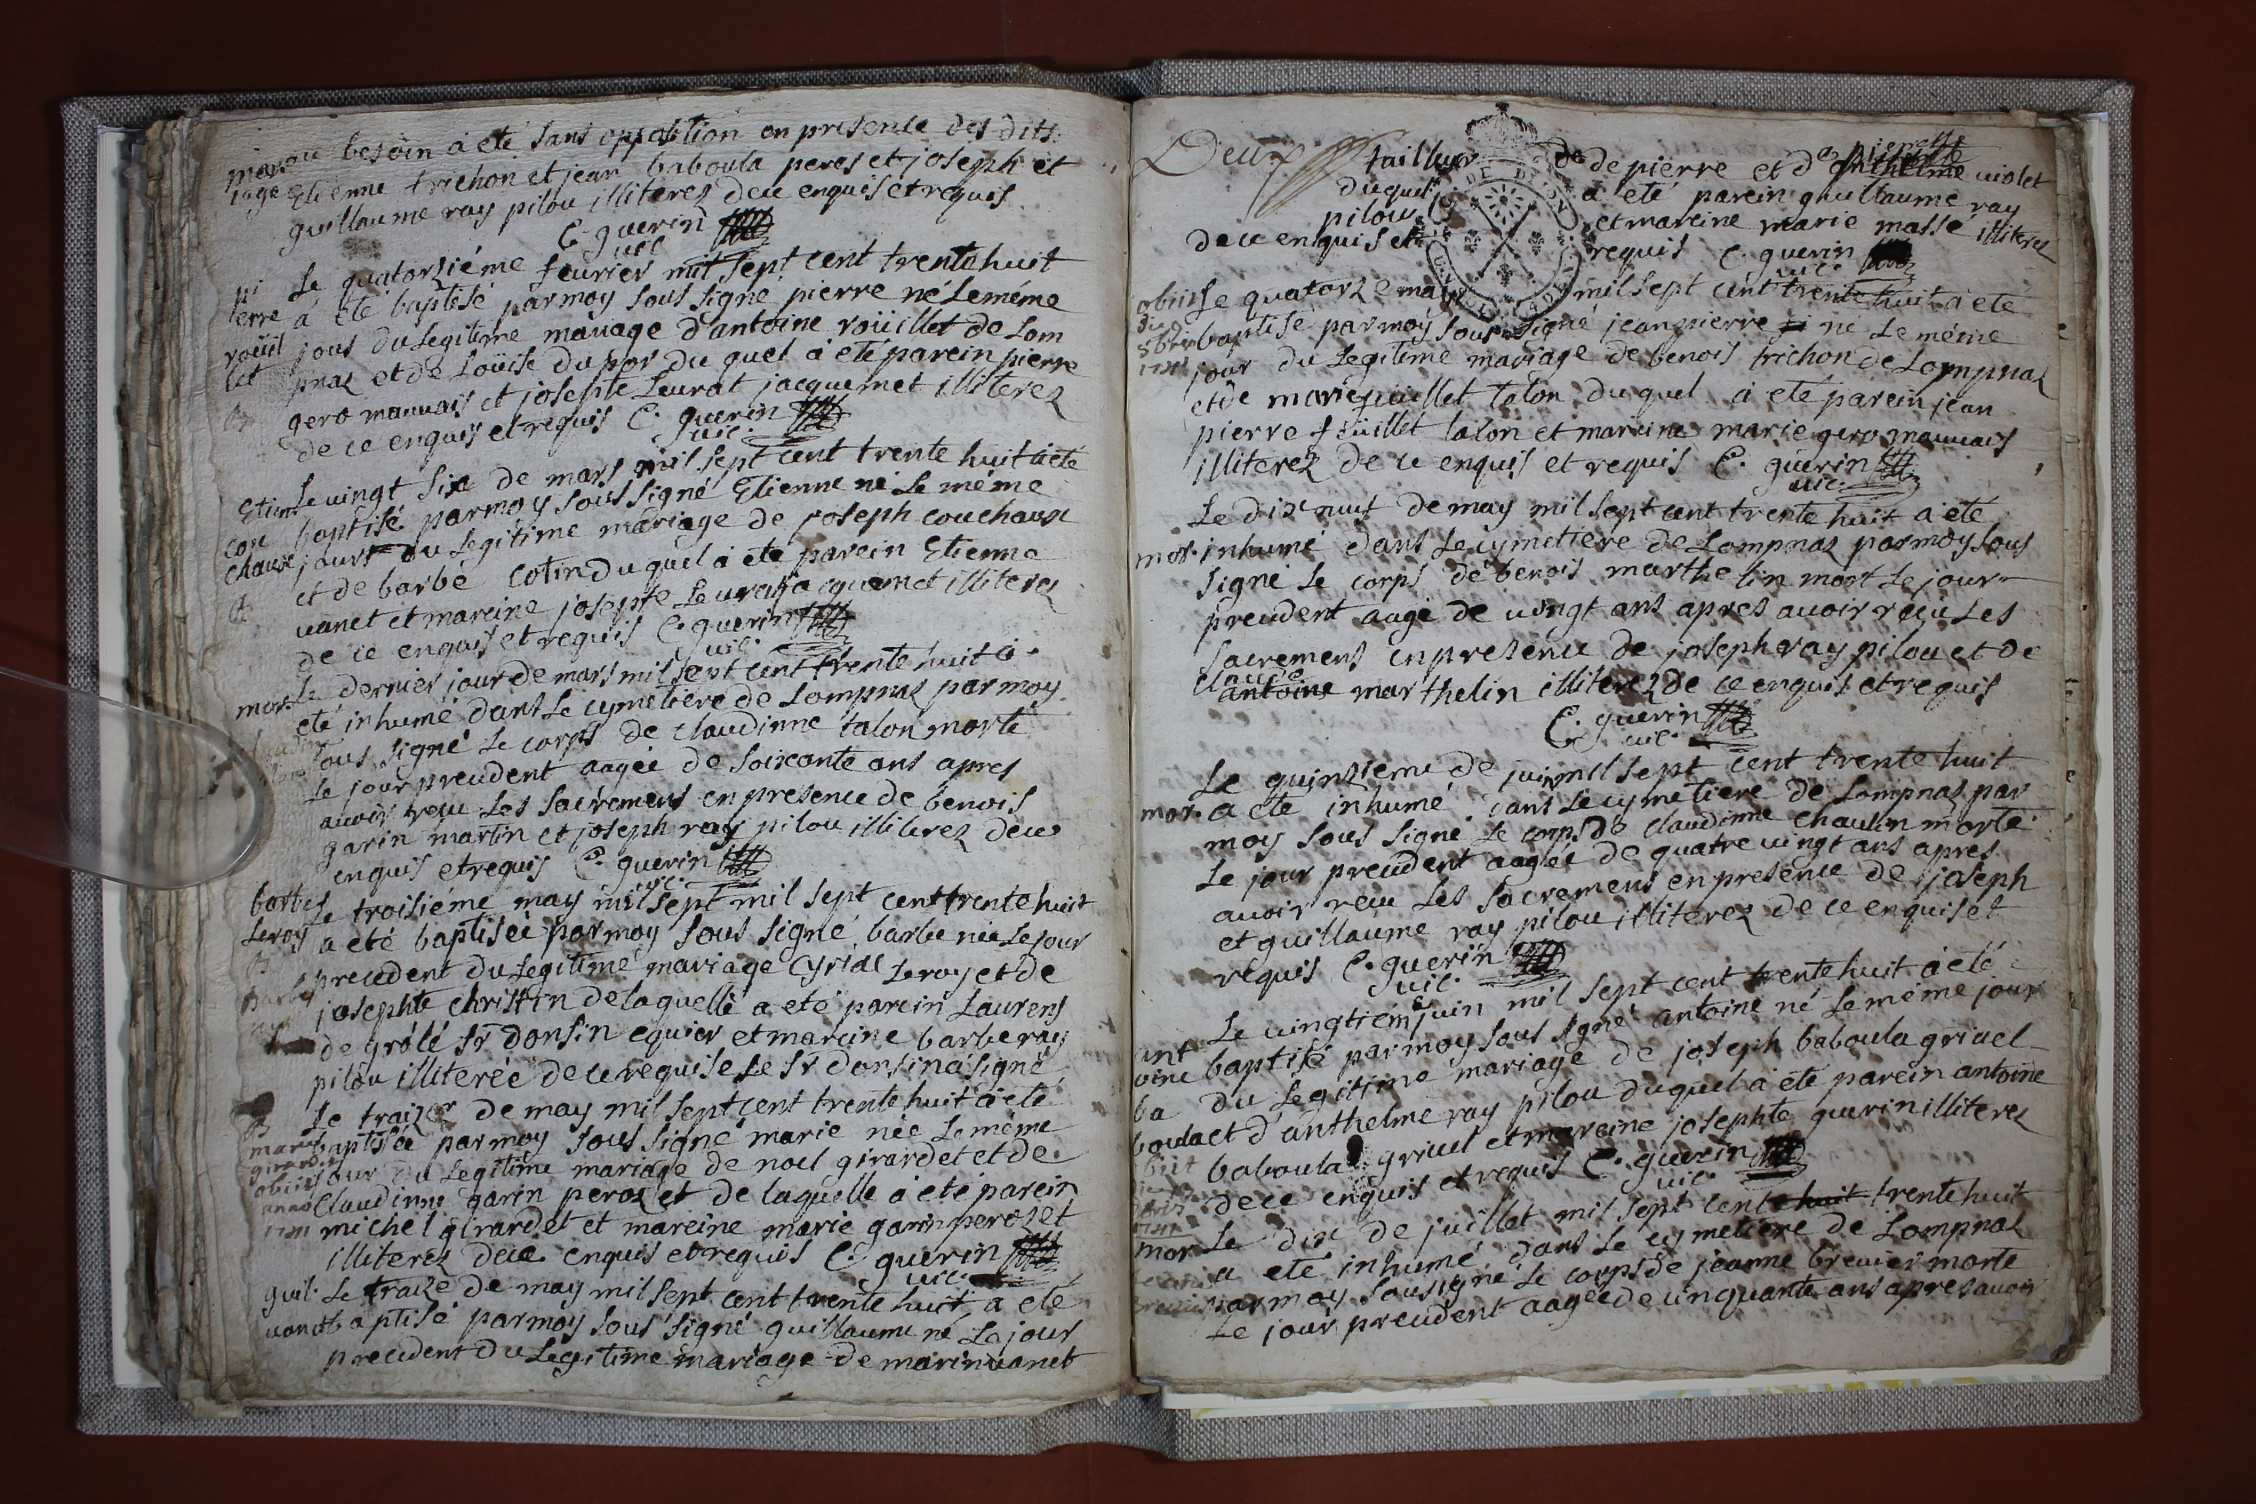 au besoin a eté sans opposition en presence des dits
mar
iage
Etienne trichon et jean baboula peres et joseph et
guillaume ray pilou illiterez de ce enquis et requis
C. guerin
vic.
Le quatorziéme feurier mil sept cent trente huit
pi
erre
roüil
let
a été baptisé par moy sous signé pierre né le méme
jour du legitime mariage d'antoine roüillet de Lom
pnaz et de Loüise du por du quel a eté parein pierre
gero mauuais et josephte Leurat jacquemet illiterez
de ce enquis et requis C. guerin
vic.
Le vingt six de mars mil sept cent trente huit a eté
Etienne
cou
chaux
baptisé par moy sous signé Etienne né le méme
jour du legitime mariage de joseph couchaux
et de barbe cotin du quel a eté parein Etienne
uanet et mareine josephte Leurat jacquemet illiterez
de ce enquis et requis C. guerin
vic.
Le dernier jour de mars mil sept cent trente huit a
mor.
eté inhumé dans le cymetiere de Lompnaz par moy
sous signé le corps de claudinne talon morte
le jour precedent aagée de soixante ans apres
auoir reçu les sacremens en presence de benois
garin martin et joseph ray pilou illiterez de ce
enquis et requis C. guerin
vic.
barbe
Leroy
Le troisiéme may mil sept mil sept cent trente huit
a eté baptisée par moy sous signé barbe née le jour
precedent du legitime mariage Cyriac Leroy et de
josephte christin de laquelle a eté parein Laurens
de grôlé sr Donsin equier et mareine barbe ray
pilou illiterée de ce requise le sr donsin a signé
Le traize de may mil sept cent trente huit a eté
marie
girardet
obiit
anno
baptisée par moy sous signé marie née le méme
jour du legitime mariage de noel girardet et de
Claudinne garin perozet de laquelle a eté parein
michel girardet et mareine marie garin perozet
illiterez de ce enquis et requis C. guerin
vic.
guil.
uanet
Le traize de may mil sept cent trente huit a eté
baptisé par moy sous signé guillaume né le jour
precedent du legitime mariage de marin uanet
Deux
tailleur de de pierre et d'anthelme pierrette uiolet
duquel a eté parein guillaume ray
pilou et mareine marie massé illiterez
de ce enquis et requis C. guerin
vic.
obiit
Le quatorze may mil sept cent trente huit a eté
baptisé par moy sous signé jean pierre né le méme
jour du legitime mariage de benois trichon de Lompnaz
et de marie juillet talon du quel a eté parein jean
pierre juillet talon et mareine marie gero mauuais
illiterez de ce enquis et requis C. guerin
vic.
Le dix nuit de may mil sept cent trente huit a eté
mor.
inhumé dans le cymetiere de Lompnaz par moy sous
signé le corps de benois marthelin mort le jour
precedent aagé de vingt ans apres auoir reçu les
sacremens en presence de joseph ray pilou et de
claude
antoine marthelin illiterez de ce enquis et requis
C. guerin
vic.
Le quinzieme de juin mil sept cent trente huit
mor.
a eté inhumé dans le cymetiere de Lompnaz par
moy sous signé le corps de claudinne chaulin morte
le jour precedent aagée de quatre vingt ans apres
auoir reçu les sacremens en presence de joseph
et guillaume ray pilou illiterez de ce enquis et
requis C. guerin
vic.
Le vingtiéme juin mil sept cent trente huit a eté
ant
oine
ba
boula
baptisé par moy sous signé antoine né le méme jour
du legitime mariage de joseph baboula griuel
et d'anthelme ray pilou duquel a eté parein antoine
baboula griuel et mareine josephte guerin illiterez
de ce enquis et requis C. guerin
vic.
mor
Le dix de juillet mil sept cent huit trente huit
a eté inhumé dans le cymetiere de Lompnaz
par moy sousigné le corps de jeanne breuier morte
le jour precedent aagée de cinquante ans apres auoir